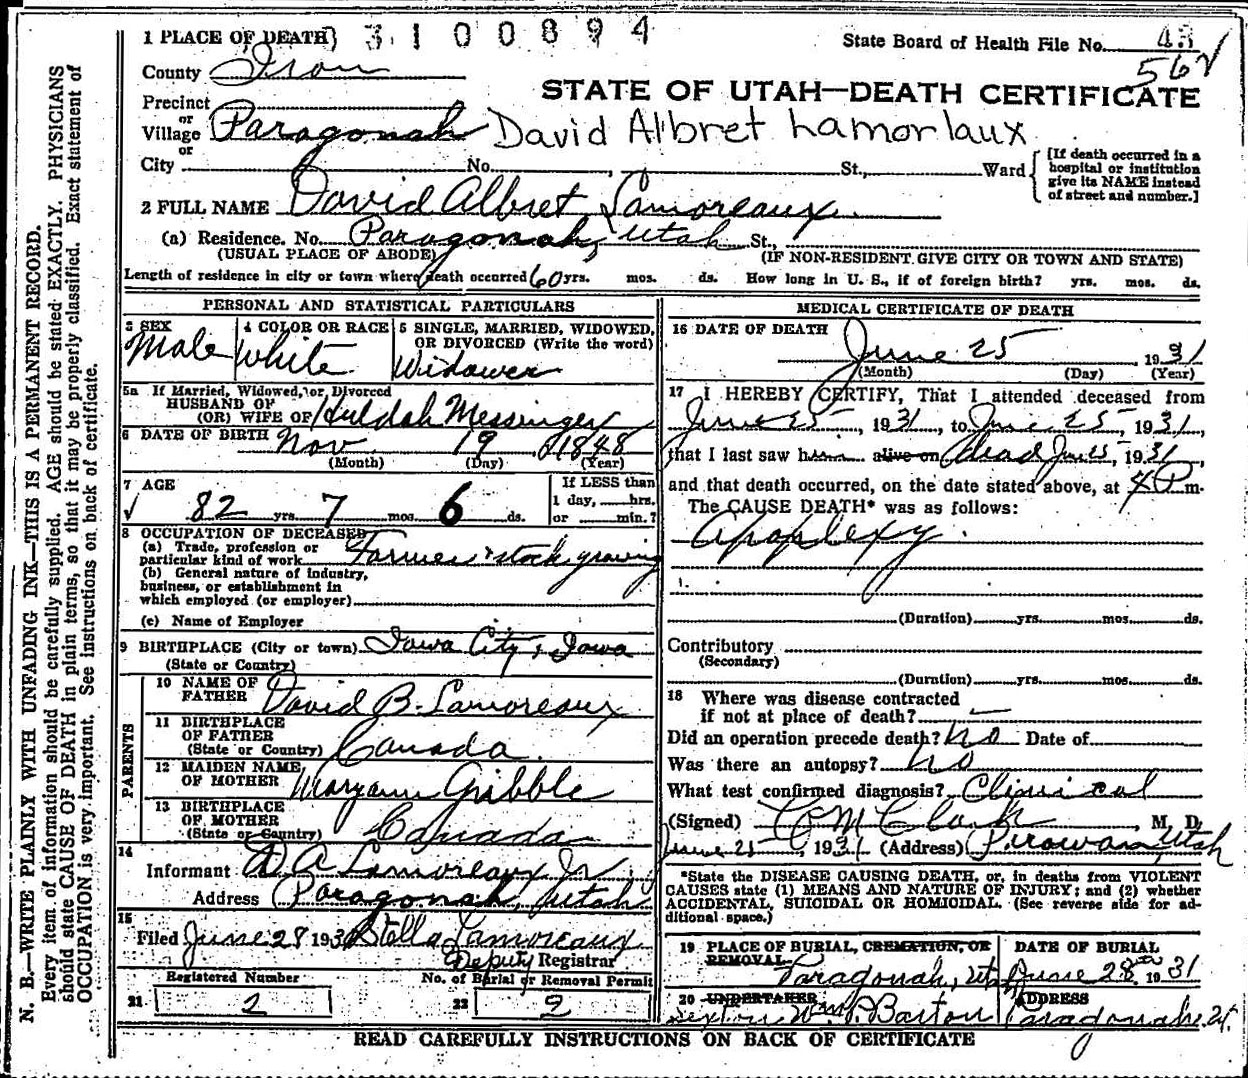 1 PLACE OF DEATH 3 1 0 0 8 9 4
State Board of Health File No. 43
56
County Iron
STATE OF UTAH—DEATH CERTIFICATE
Precinct
or
Village Paragonah David Albret Lamoriaux
or
City No. , St., Ward
[If death occurred in a
hospital or institution
give its NAME instead
of street and number.]
2 FULL NAME David Albret Lamoreaux
(a) Residence. No. Paragonah, Utah St.,
(USUAL PLACE OF ABODE) (IF NON-RESIDENT GIVE CITY OR TOWN AND STATE)
Length of residence in city or town where death occurred 60 yrs. mos. ds. How long in U. S., if of foreign birth? yrs. mos. ds.
PERSONAL AND STATISTICAL PARTICULARS
3 SEX
Male
4 COLOR OR RACE
White
5 SINGLE, MARRIED, WIDOWED,
OR DIVORCED (Write the word)
Widower
5a If Married, Widowed, or Divorced
HUSBAND OF
(OR) WIFE OF Huldah Messinger
6 DATE OF BIRTH Nov 19 1848
(Month) (Day) (Year)
7 AGE
82 yrs. 7 mos. 6 ds.
If LESS than
1 day, hrs.
or min.?
8 OCCUPATION OF DECEASED
(a) Trade, profession or
particular kind of work Farmer & stock growing
(b) General nature of industry,
business, or establishment in
which employed (or employer)
(c) Name of Employer
9 BIRTHPLACE (City or town) Iowa City, Iowa
(State or Country)
PARENTS
10 NAME OF
FATHER David B. Lamoreaux
11 BIRTHPLACE
OF FATHER
(State or Country) Canada
12 MAIDEN NAME
OF MOTHER Maryann Gribble
13 BIRTHPLACE
OF MOTHER
(State or Country) Canada
14
Informant D A Lamoreaux Jr
Address Paragonah, Utah
15
Filed June 28 1931 Stella Lamoreaux
Deputy Registrar
Registered Number No. of Burial or Removal Permit
21 2 22 2
MEDICAL CERTIFICATE OF DEATH
16 DATE OF DEATH
June 25 1931
(Month) (Day) (Year)
17 I HEREBY CERTIFY, That I attended deceased from
June 25, 1931, to June 25, 1931,
that I last saw him alive on dead June 25, 1931,
and that death occurred, on the date stated above, at 4 P m.
The CAUSE DEATH* was as follows:
Apoplexy
(Duration) yrs. mos. ds.
Contributory
(Secondary)
(Duration) yrs. mos. ds.
18 Where was disease contracted
if not at place of death? —
Did an operation precede death? No Date of
Was there an autopsy? No
What test confirmed diagnosis? Clinical
(Signed) Clark, M. D.
June 25, 1931 (Address) Parowan, Utah
*State the DISEASE CAUSING DEATH, or, in deaths from VIOLENT
CAUSES state (1) MEANS AND NATURE OF INJURY; and (2) whether
ACCIDENTAL, SUICIDAL OR HOMICIDAL. (See reverse side for ad-
ditional space.)
19 PLACE OF BURIAL, CREMATION, OR
REMOVAL
Paragonah, Utah
DATE OF BURIAL
June 28th 1931
20 UNDERTAKER
Sexton Wm P. Barton
ADDRESS
Paragonah, Ut.
READ CAREFULLY INSTRUCTIONS ON BACK OF CERTIFICATE
N. B.—WRITE PLAINLY WITH UNFADING INK—THIS IS A PERMANENT RECORD.
Every item of information should be carefully supplied. AGE should be stated EXACTLY. PHYSICIANS
should state CAUSE OF DEATH in plain terms, so that it may be properly classified. Exact statement of
OCCUPATION is very important. See instructions on back of certificate.